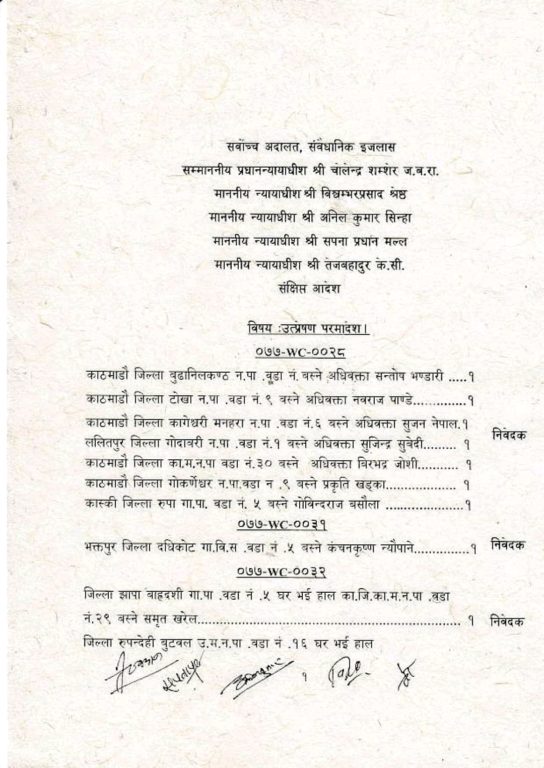 सर्वोच्च अदालत, संवैधानिक इजलास
सम्माननीय प्रधानन्यायाधीश श्री चोलेन्द्र शम्शेर ज.ब.रा.
माननीय न्यायाधीश श्री विश्वम्भरप्रसाद श्रेष्ठ
माननीय न्यायाधीश श्री अनिल कुमार सिन्हा
माननीय न्यायाधीश श्री सपना प्रधान मल्ल
माननीय न्यायाधीश श्री तेजबहादुर के.सी.
संक्षिप्त आदेश
विषय :उत्प्रेषण परमादेश।
०७७-WC-००२८
काठमाडौं जिल्ला बुढानिलकण्ठ न.पा .वडा नं. बस्ने अधिवक्ता सन्तोष भण्डारी .....१
काठमाडौं जिल्ला टोखा न.पा .वडा नं.९ बस्ने अधिवक्ता नवराज पाण्डे..............१
काठमाडौं जिल्ला कागेश्वरी मनहरा न.पा .वडा नं.६ बस्ने अधिवक्ता सुजन नेपाल.१ निवेदक
ललितपुर जिल्ला गोदावरी न.पा .वडा नं.१ बस्ने अधिवक्ता सुजिन्द्र सुवेदी......... १
काठमाडौं जिल्ला का.म.न.पा वडा नं.३० बस्ने अधिवक्ता बिरभद्र जोशी........... १
काठमाडौं जिल्ला गोकर्णेश्वर न.पा.वडा न .९ बस्ने प्रकृति खड्का................... १
कास्की जिल्ला रुपा गा.पा. वडा नं. ५ बस्ने गोविन्दराज बसौला ..................१
०७७-WC-००३१
भक्तपुर जिल्ला दधिकोट गा.वि.स .वडा नं .५ बस्ने कंचनकृष्ण न्यौपाने...............१ निवेदक
०७७-WC-००३२
जिल्ला झापा बाह्रदशी गा.पा .वडा नं .५ घर भई हाल का.जि.का.म.न.पा .वडा
नं.२९ बस्ने समृत खरेल.................................................................. १ निवेदक
जिल्ला रुपन्देही बुटवल उ.म.न.पा .वडा नं .१६ घर भई हाल
१